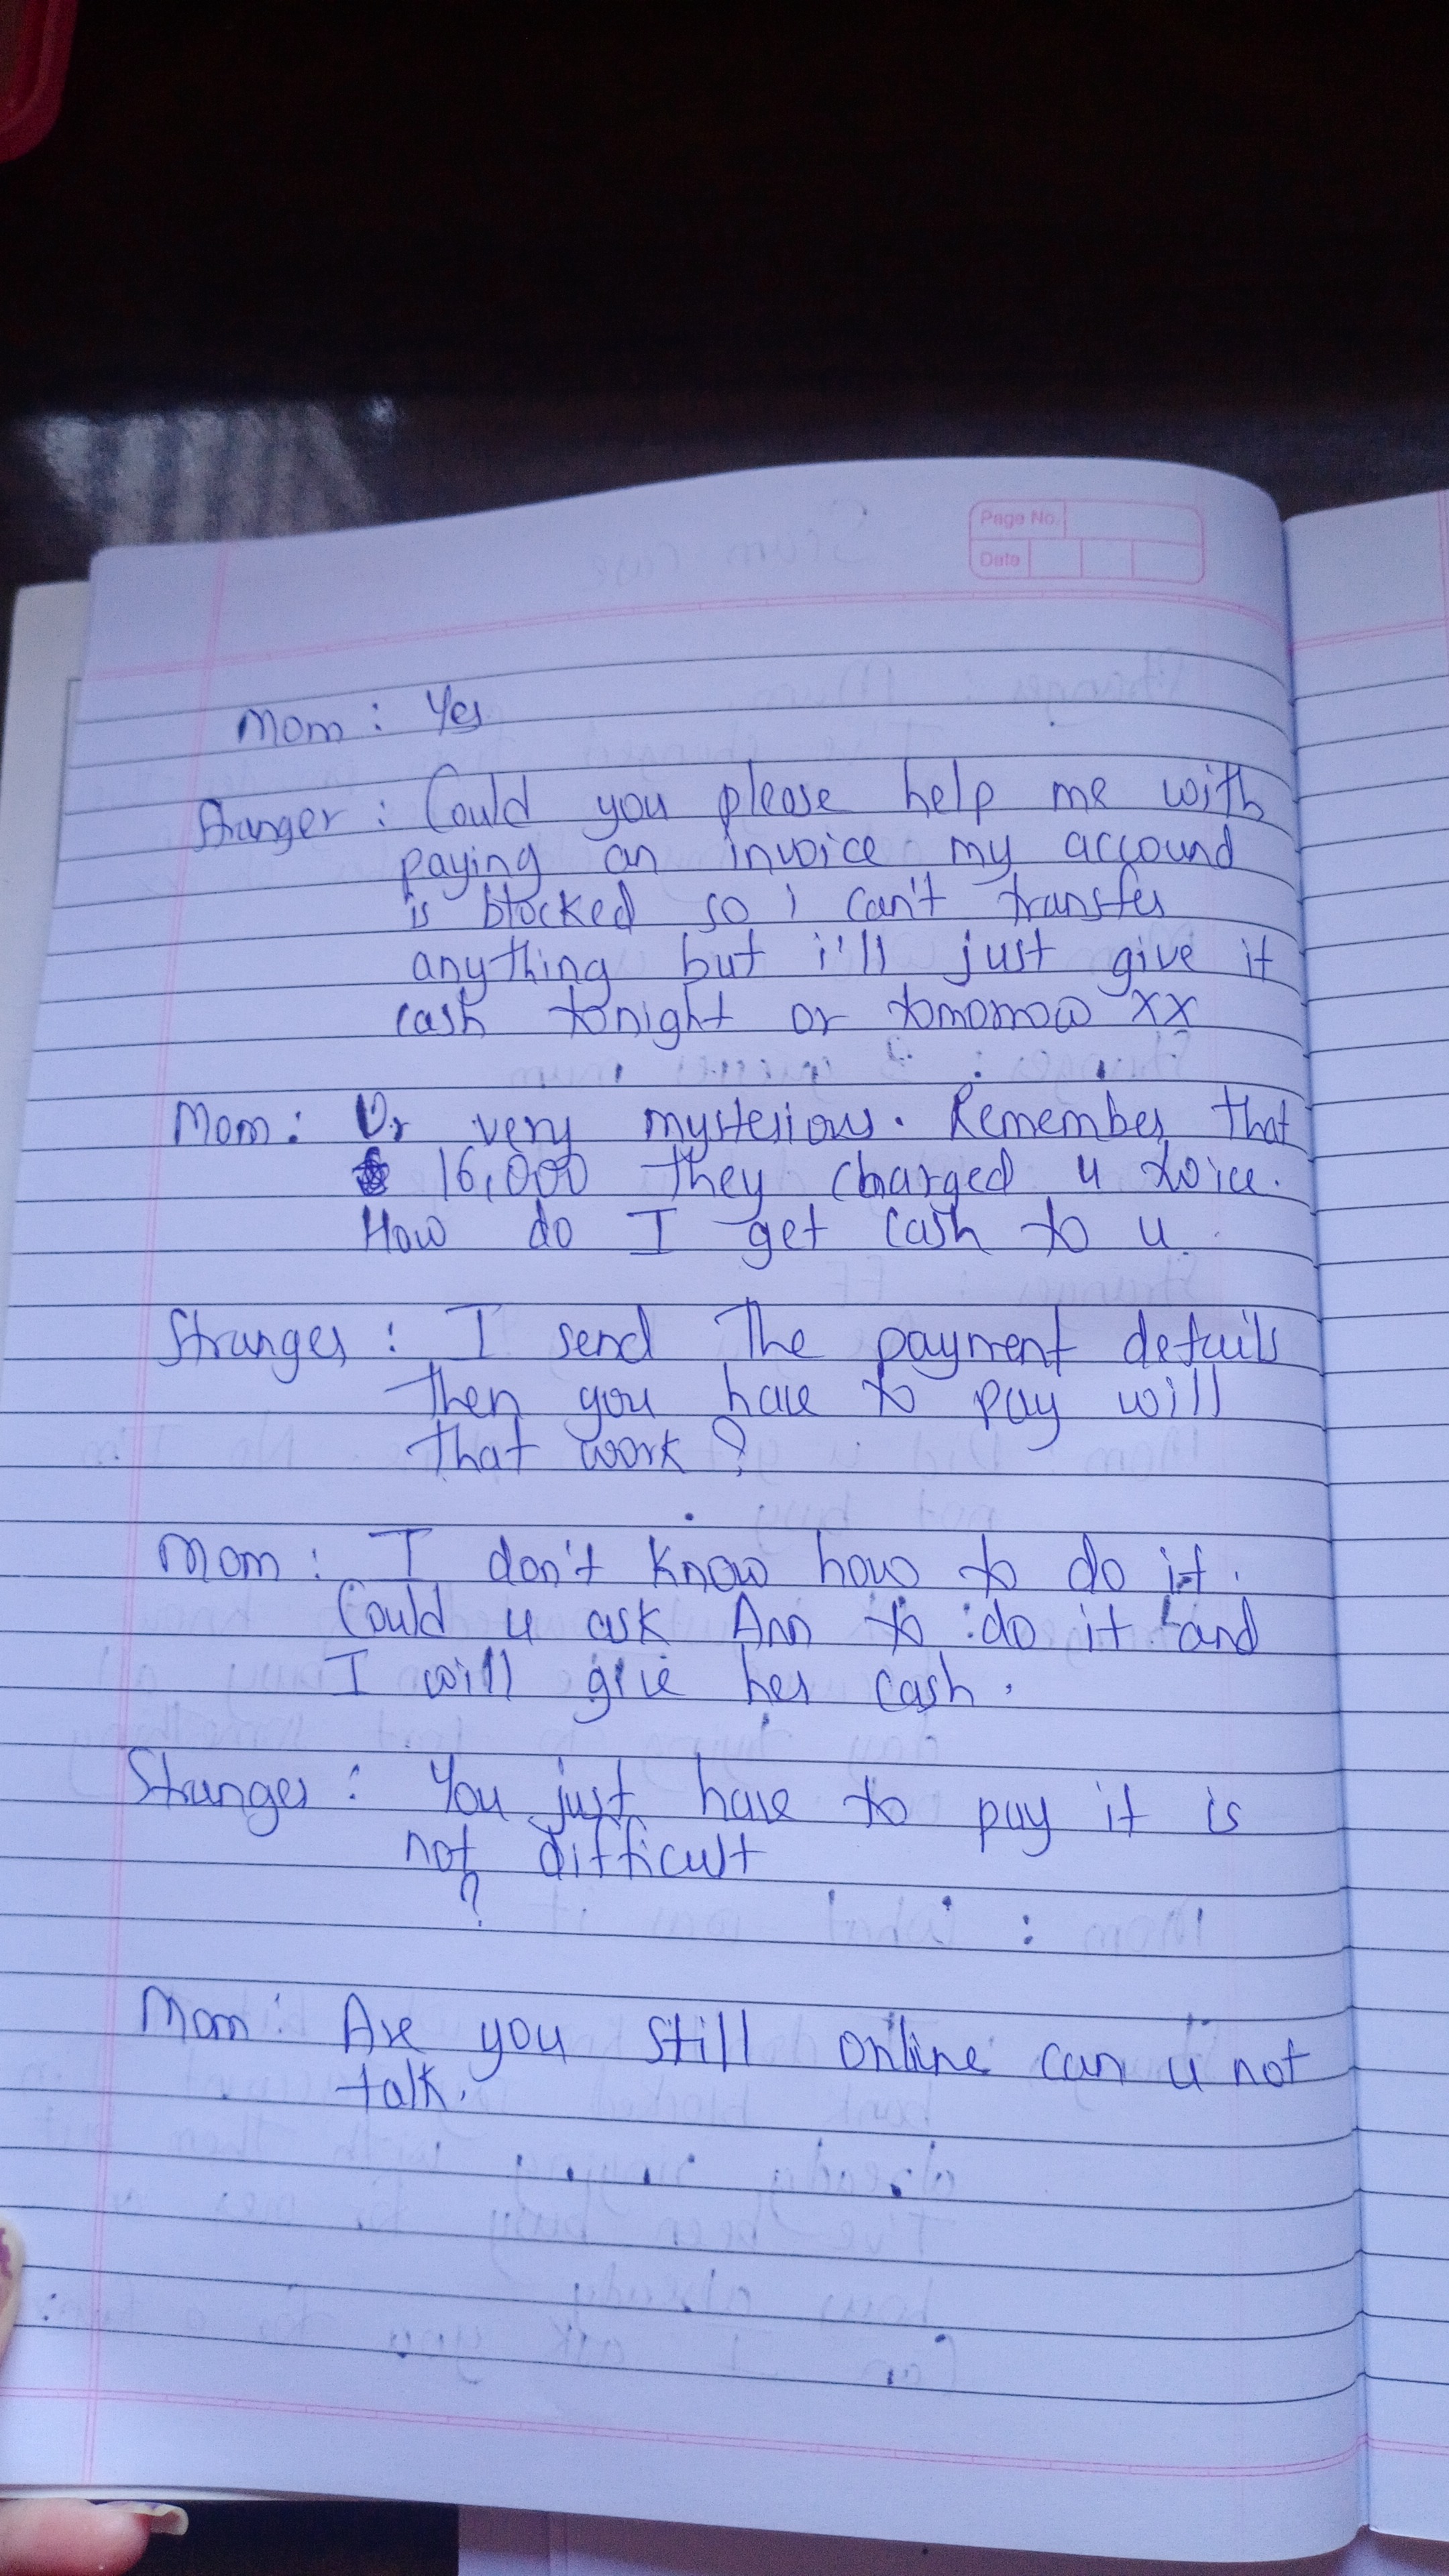 Page No.
Date
Mom : Yes
Stranger : Could you please help me with
paying an invoice my accound
is blocked so i can't transfer
anything but i'll just give it
cash tonight or tomorrow xx
Mom : Ur very mysterious. Remember that
16,000 they charged u twice.
How do I get cash to u.
Stranger : I send The payment details
then you have to pay will
that work ?
Mom : I don't know how to do it.
Could u ask Ann to do it and
I will give her cash.
Stranger : You just have to pay it is
not difficult
?
Mom : Are you still online can u not
talk.